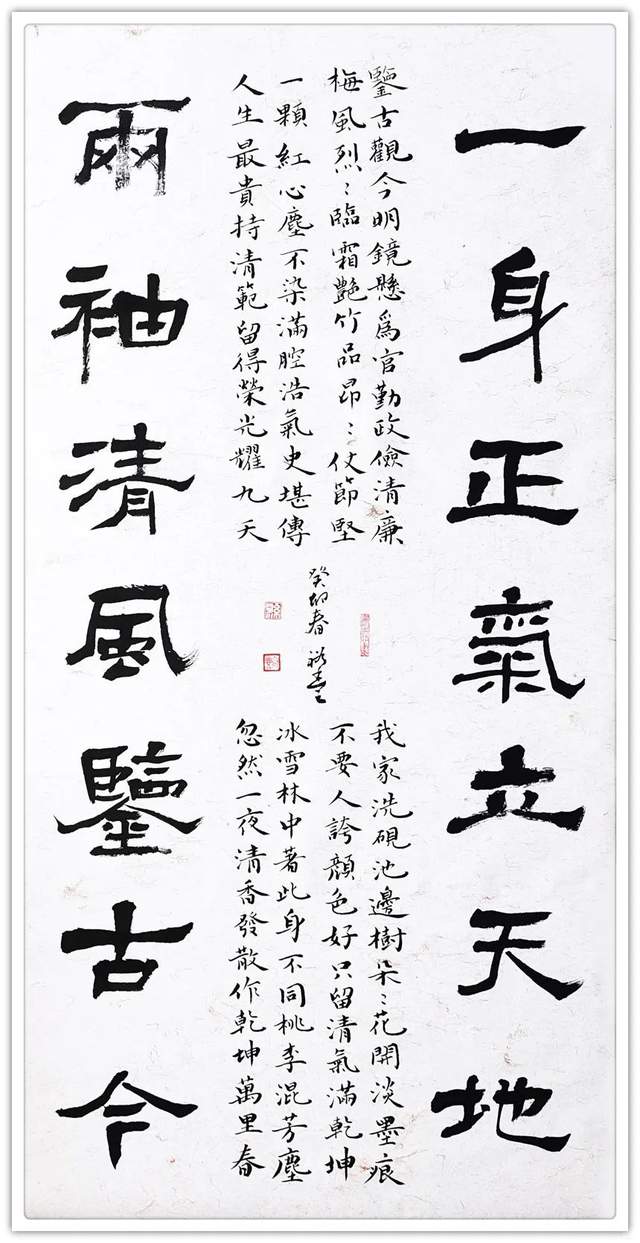 一身正氣立天地
鑒古觀今明鏡懸爲官勤政儉清廉
梅風烈〻臨霜艷竹品昂〻仗節堅
一顆紅心塵不染滿腔浩氣史堪傳
人生最貴持清範留得榮光耀九天
癸卯春
我家洗硯池邊樹朵〻花開淡墨痕
不要人誇顏色好只留清氣滿乾坤
冰雪林中著此身不同桃李混芳塵
忽然一夜清香發散作乾坤萬里春
兩袖清風鑒古今